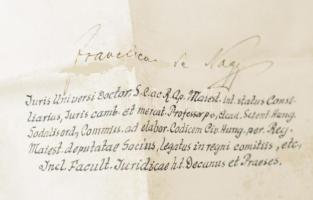 Franciscus de Nagy
Juris Universi Doctor, S. C. ac R. Ap. Majest. int. status Consi-
liarius, Juris camb. et mercat. Professor p. o., Acad. Scient. Hung.
Sodalis ord., Commiss. ad elabor. Codicem Civ. Hung. per. Reg.
Majest. deputatae Socius, legatus in regni comitiis, etc.,
Incl. Facult. Juridicae h. t. Decanus et Praeses.